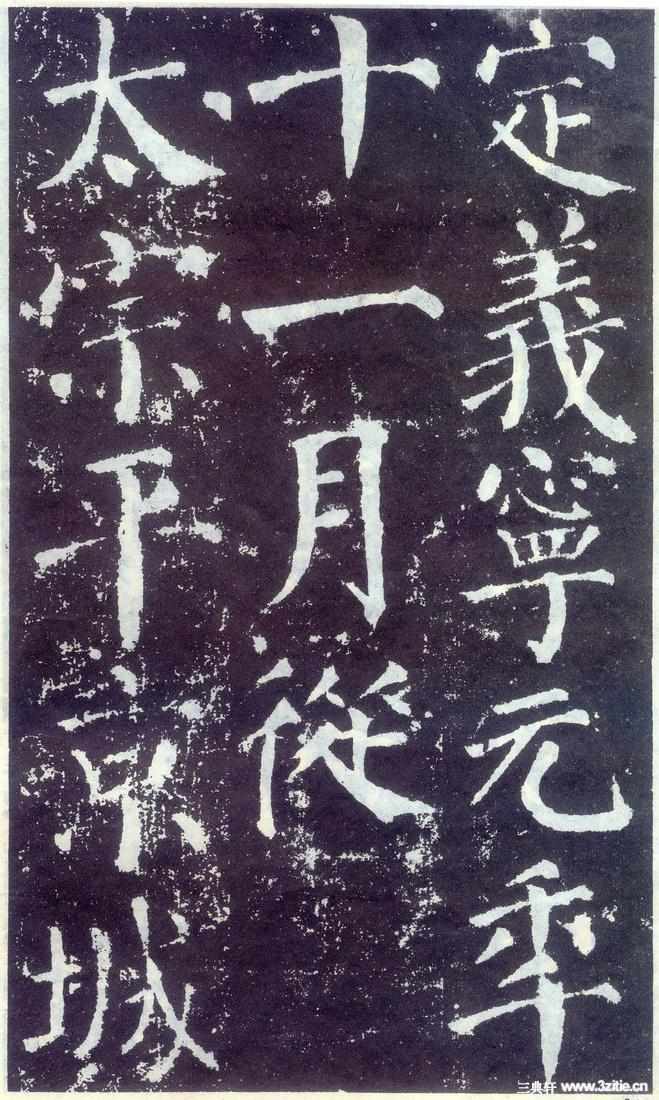 定義寧元年
十一月從
太宗平京城
三典轩 www.3zitie.cn